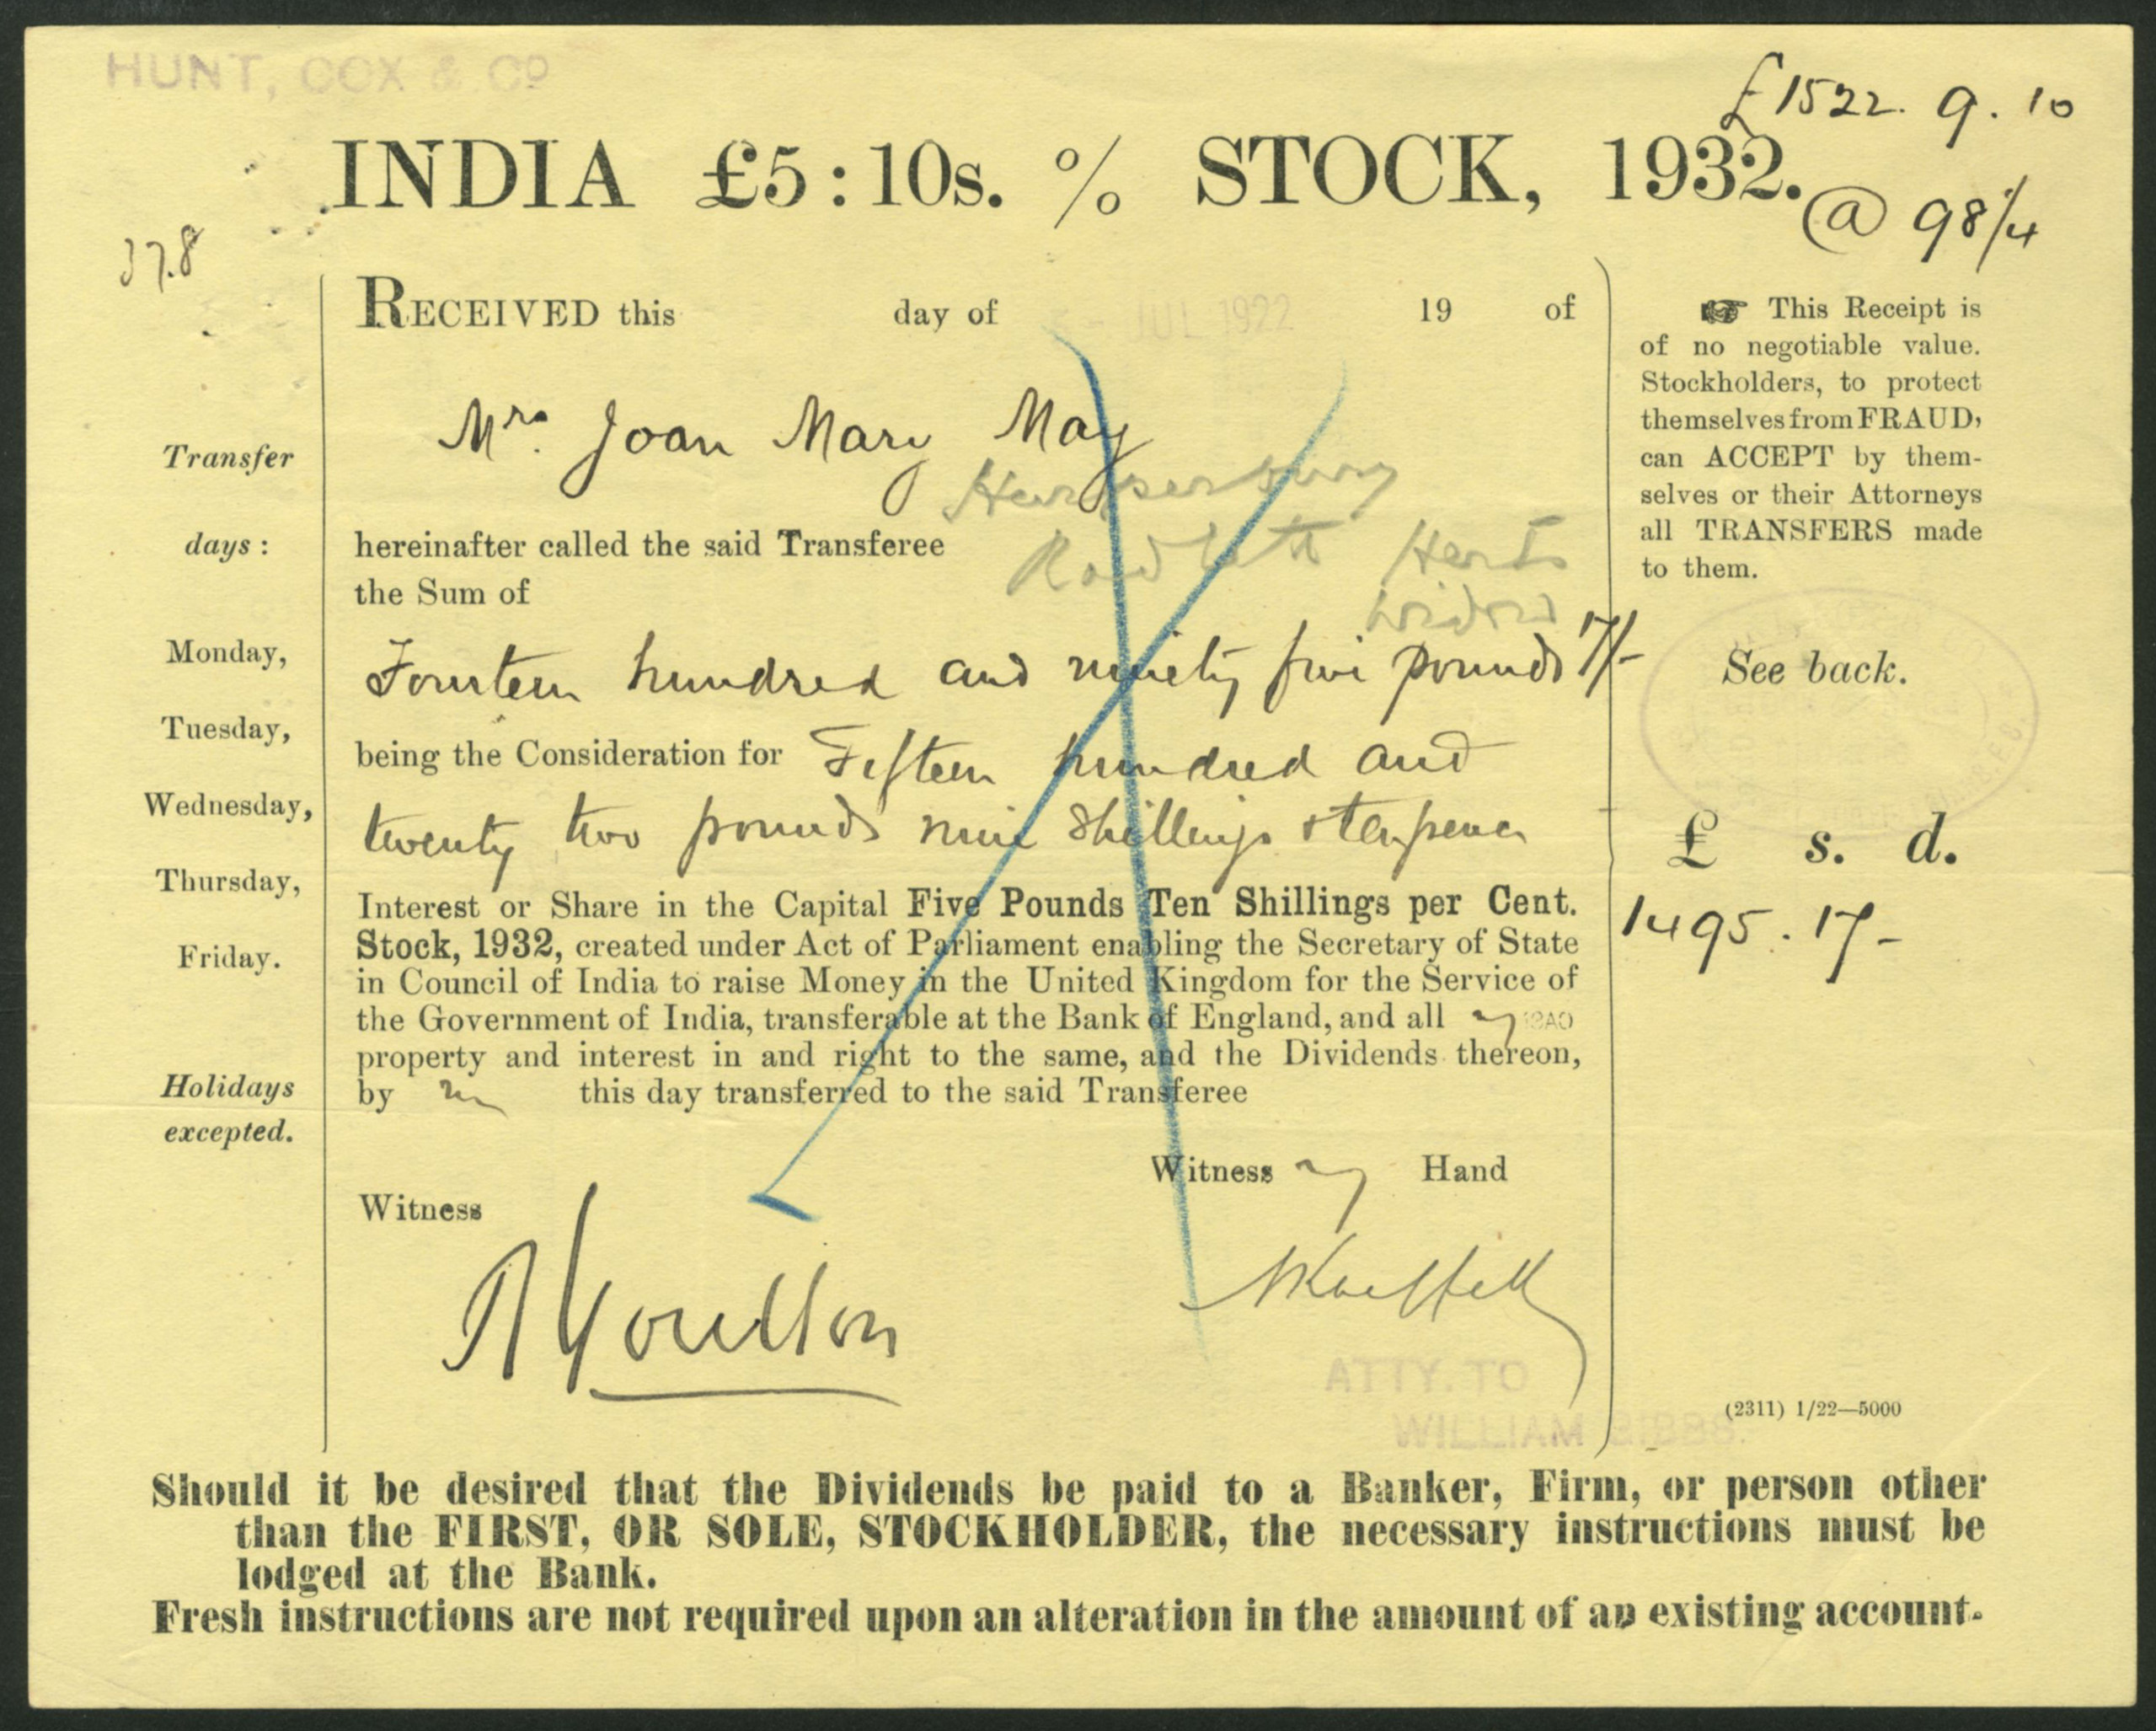 HUNT, COX & Co
£1522. 9. 10
INDIA £5:10s. % STOCK, 1932.
@ 98 1/4
37.8
RECEIVED this day of JUL 1922 19 of
Mrs. Joan Mary May
Harpsbury
Radlett Herts
Widow
hereinafter called the said Transferee
the Sum of
Fourteen hundred and ninety five pounds 17/-
being the Consideration for Fifteen hundred and
twenty two pounds nine shillings & tenpence
Interest or Share in the Capital Five Pounds Ten Shillings per Cent.
Stock, 1932, created under Act of Parliament enabling the Secretary of State
in Council of India to raise Money in the United Kingdom for the Service of
the Government of India, transferable at the Bank of England, and all my
property and interest in and right to the same, and the Dividends thereon,
by me this day transferred to the said Transferee
Witness my Hand
Witness
ATTY. TO
WILLIAM GIBBS.
Transfer
days:
Monday,
Tuesday,
Wednesday,
Thursday,
Friday.
Holidays
excepted.
☞ This Receipt is
of no negotiable value.
Stockholders, to protect
themselves from FRAUD,
can ACCEPT by them-
selves or their Attorneys
all TRANSFERS made
to them.
See back.
£ s. d.
1495. 17 -
(2311) 1/22—5000
Should it be desired that the Dividends be paid to a Banker, Firm, or person other
than the FIRST, OR SOLE, STOCKHOLDER, the necessary instructions must be
lodged at the Bank.
Fresh instructions are not required upon an alteration in the amount of an existing account.